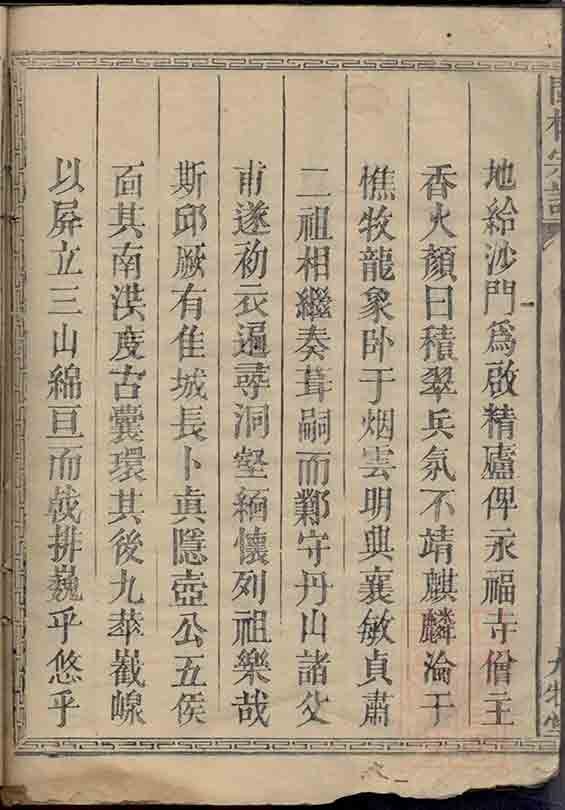 地給沙門爲啟精廬俾永福寺僧主
香火顏曰積翠兵氛不靖麒麟淪于
樵牧龍象卧于烟雲明興襄敏貞肅
二祖相繼奏葺嗣而鄴守丹山諸父
甫遂初衣遍尋洞壑緬懷列祖樂哉
斯邱厥有佳城長卜真隱壺公五侯
面其南洪度古囊環其後九華巀嶫
以屏立三山綿亘而戟排巍乎悠乎